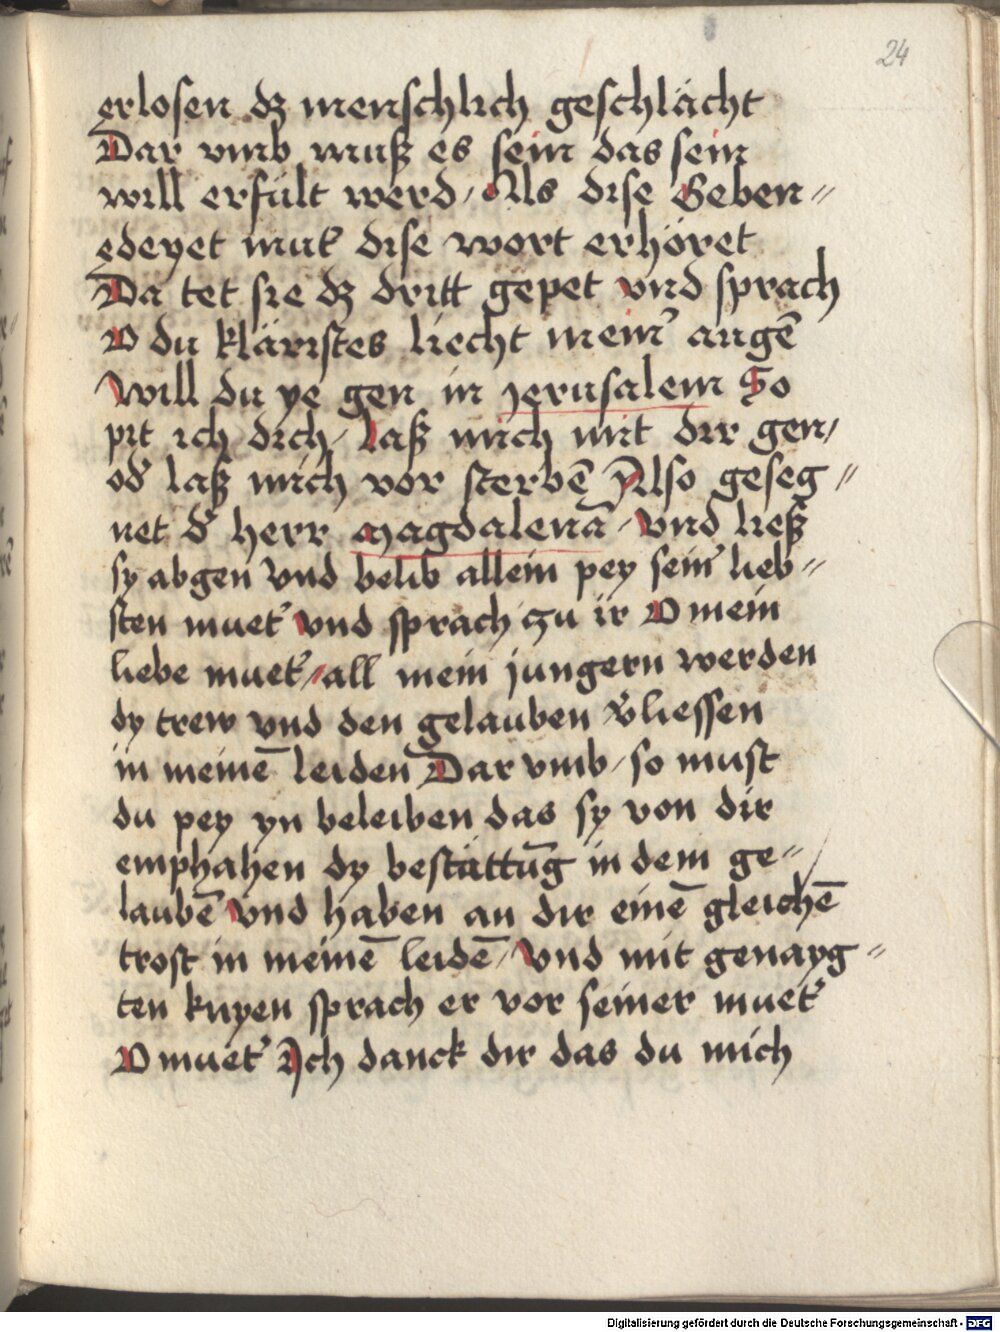 24
erlosen dz menschlich geschlächt
Dar vmb muß es sein das sein
will erfült werd / Als dise Geben=
edeyet mut̉ dise wort erhöret
Da tet sie dz dritt gepet vnd sprach
O du kläristes liecht mein̉ augē
Will du ye gen in Jerusalem So
pit ich dich / laß mich mit dir gen /
od̉ laß mich vor sterbē Also geseg=
net d̉ herr Magdalenā / vnd ließ
sy abgen vnd belib allein pey sein̉ lieb=
sten muet̉ vnd sprach zu ir O mein
liebe muet̉ / all mein jungern werden
dy trew vnd den gelauben v̉liessen
in meinē leiden Dar vmb / so must
du pey yn beleiben das sy von dir
emphahen dy bestättūg in dem ge=
laubē vnd haben an dir einē gleichē
trost in meinē leidē / Vnd mit genayg=
ten knyen sprach er vor seiner muet̉
O muet̉ Ich danck dir das du mich
Digitalisierung gefördert durch die Deutsche Forschungsgemeinschaft - DFG